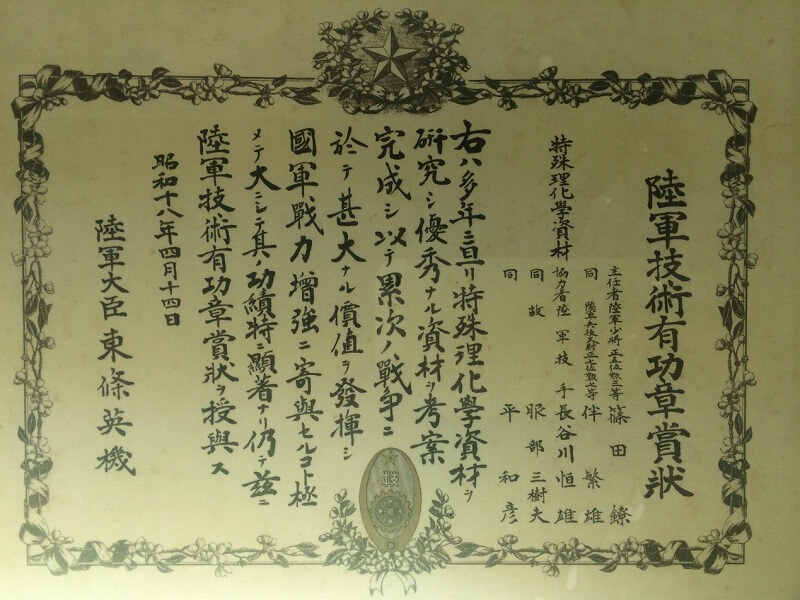 陸軍技術有功章賞狀
主任者陸軍少將正五位勲三等 篠田鐐
同 陸軍兵技大尉正七位勲七等 伴繁雄
特殊理化學資材 協力者陸軍技手 長谷川恒雄
同故 服部三樹夫
同 平和彦
右ハ多年ニ亘リ特殊理化學資材ヲ
硏究シ優秀ナル資材ヲ考案
完成シ以テ累次ノ戰爭ニ
於テ甚大ナル價値ヲ發揮シ
國軍戰力增強ニ寄與セルコト極
メテ大ニシテ其ノ功績特ニ顯著ナリ仍テ茲ニ
陸軍技術有功章賞狀ヲ授與ス
昭和十八年四月十四日
陸軍大臣東條英機